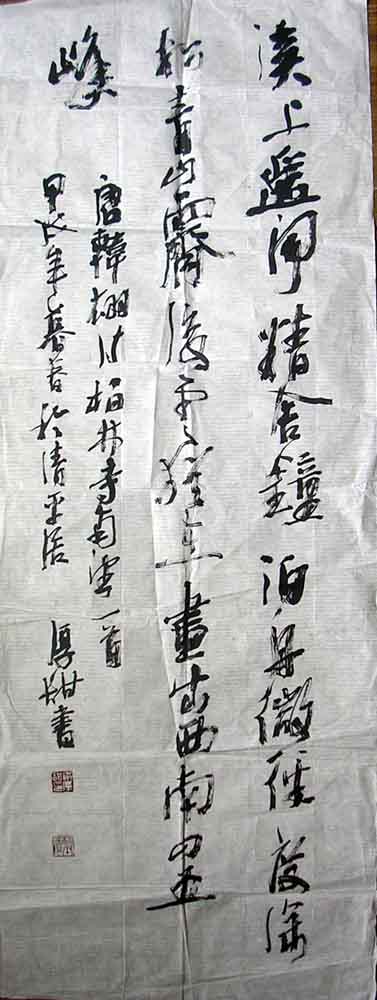 溪上遙聞精舍鐘泊舟微徑度深
松青山霽後雲猶在畫出西南四五
峰
唐韓翃詩柏林寺南望一首
甲戌年暮春於清平居 厚書